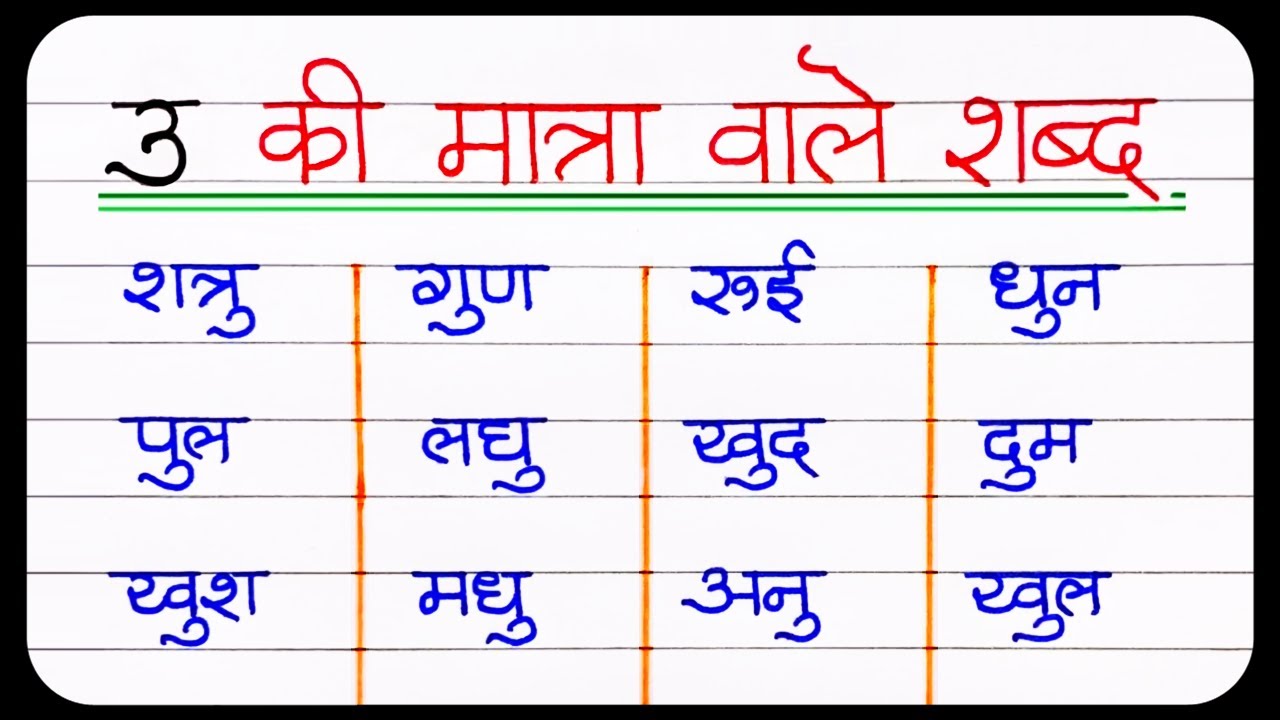 उ की मात्रा वाले शब्द
शत्रु गुण रुई धुन
पुल लघु खुद दुम
खुश मधु अनु खुल